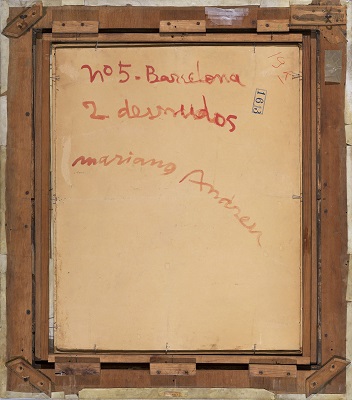 nº 5. Barcelona
2 desnudos
mariano Andreu
1613